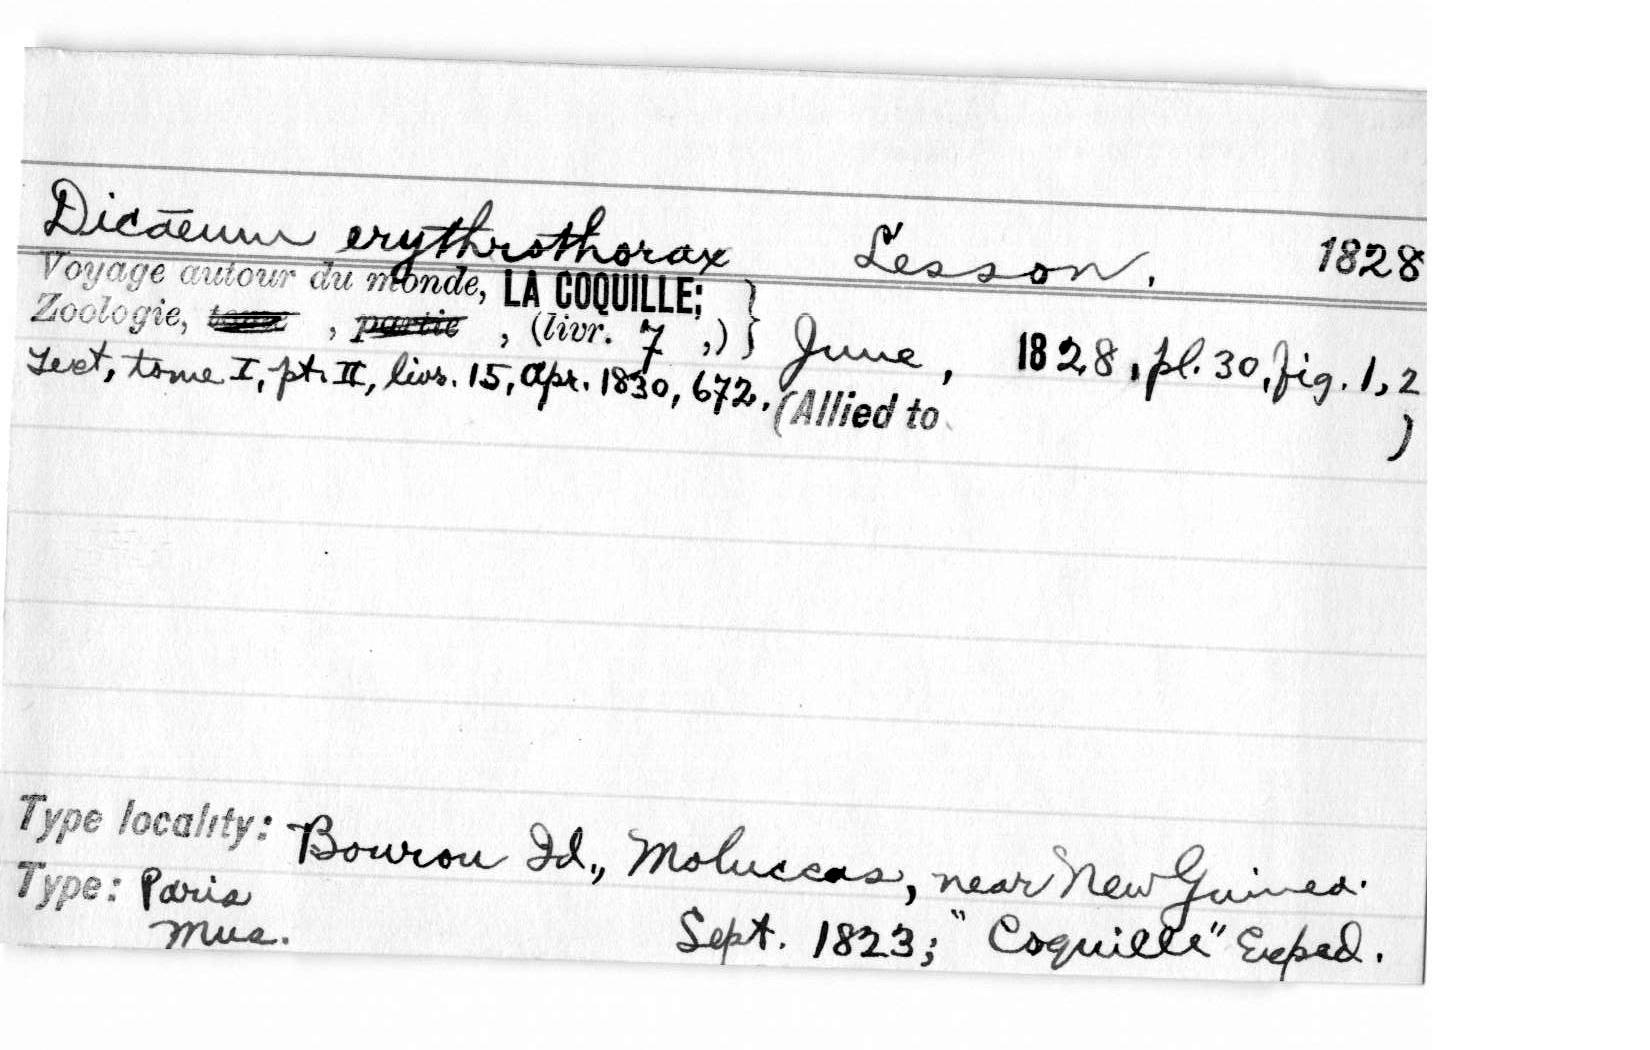 Dicaeum erythrothorax Lesson. 1828
Voyage autour du monde, LA COQUILLE;
Zoologie, tome , partie , (livr. 7 ,) } June, 1828, pl. 30, fig. 1, 2
Text, tome I, pt. II, livr. 15, Apr. 1830, 672. (Allied to )
Type locality: Bourou Id., Moluccas, near New Guinea.
Type: Paris
Mus. Sept. 1823; "Coquille" Exped.